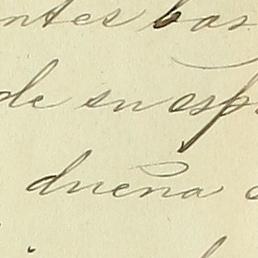 ntes bas
de su esp
dueña